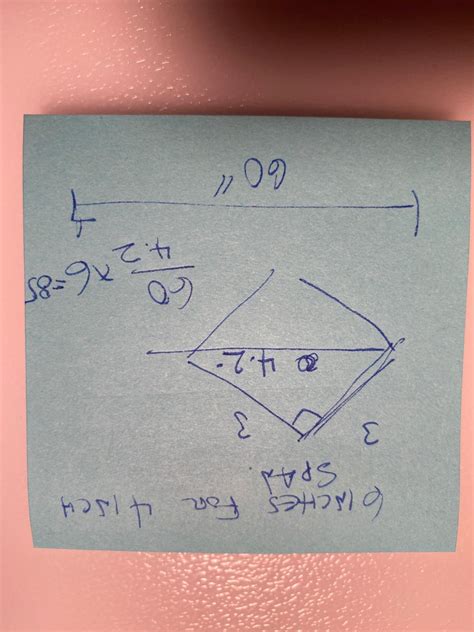 6 INCHES FOR 4 INCH
SPAN
3
3
4.2"
60
4.2
×6=85
60"